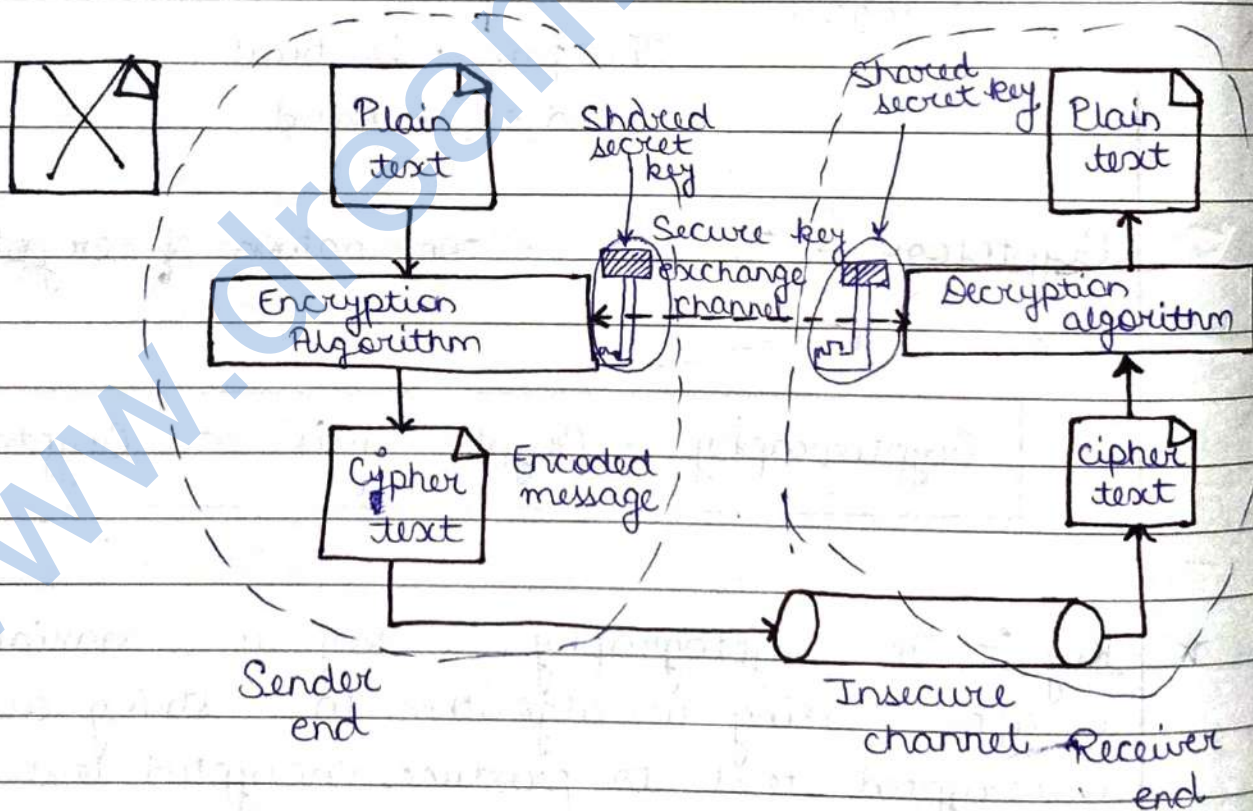 www.dream
Plain
text
Shared
secret
key
Shared
secret key
Plain
text
Secure key
exchange
channel
Encryption
Algorithm
Decryption
algorithm
Cypher
text
Encoded
message
cipher
text
Sender
end
Insecure
channel
Receiver
end